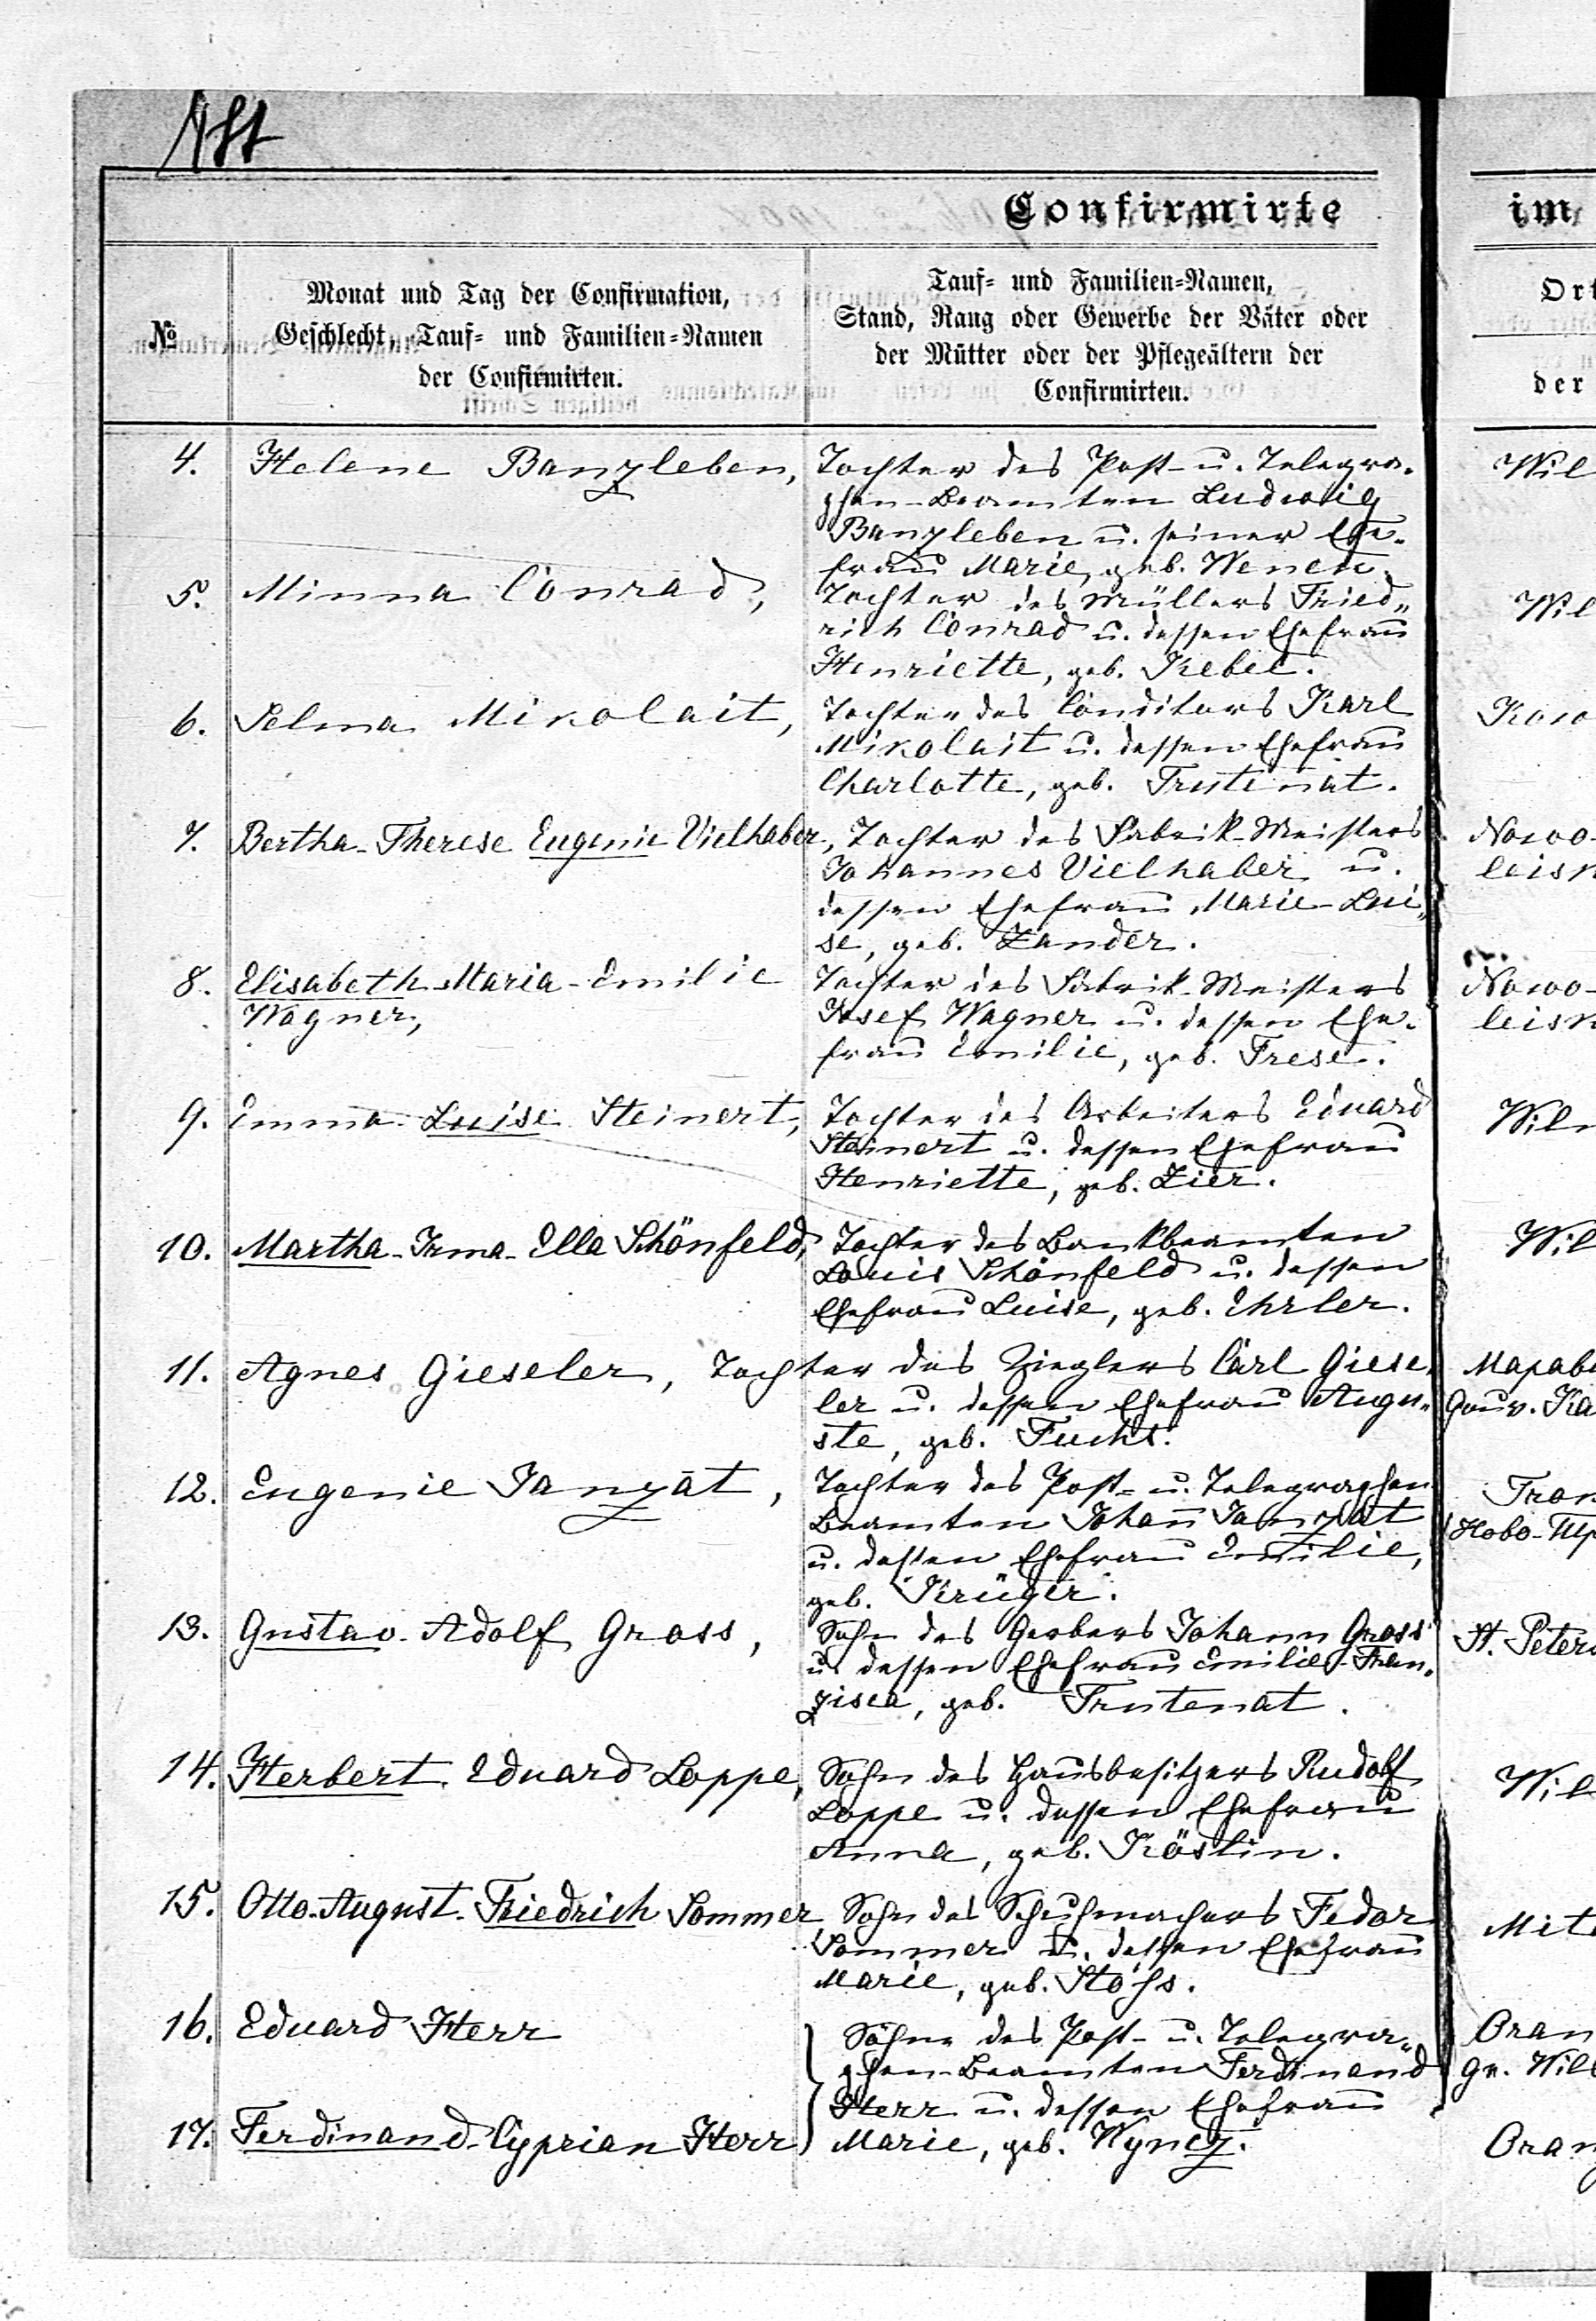 Confirmirte im
№
Monat und Tag der Confirmation,
Geschlecht, Tauf- und Familien-Namen
der Confirmirten.
Tauf- und Familien-Namen,
Stand, Rang oder Gewerbe der Väter oder
der Mütter oder der Pflegeältern der
Confirmirten.
Ort
der
4. Helene Banzleben, Tochter des Post- u. Telegra-
phen-Beamten Ludwig
Banzleben u. seiner Ehe-
frau Marie, geb.
Wil
5. Minna Conrad, Tochter des Müllers Fried„
rich Conrad u. dessen Ehefrau
Henriette, geb. Kebel.
Wil
6. Selma Mikolait, Tochter des Conditors Karl
Mikolait u. dessen Ehefrau
Charlotte, geb. Trutenat.
Kow
7. Bertha-Therese Eugenie Vielhaber, Tochter des Fabrik-Meisters
Johannes Vielhaber u.
dessen Ehefrau Marie-Lui„
se, geb. Zander.
Nowo-
leisk
8. Elisabeth-Maria-Emilie Tochter des Fabrik-Meisters
Wagner, Josef Wagner u. dessen Ehe-
frau Emilie, geb. Frese.
Nowo-
leisk
9. Emma-Luise Steinert, Tochter des Arbeiters Eduard
Steinert u. dessen Ehefrau
Henriette, geb. Zier.
Wiln
10. Martha-Irma-Ella Schönfeld, Tochter des Bankbeamten
Louis Schönfeld u. dessen
Ehefrau Luise, geb. Ehrler.
Wil
11. Agnes Gieseler, Tochter des Zieglers Carl Giese-
ler u. dessen Ehefrau Augu„
ste, geb. Fuchs.
Мараво
Gouv. Ka
12. Eugenie Janzat, Tochter des Post- u. Telegraphen
Beamten Johann Janzat
u. dessen Ehefrau Emilie,
geb. Krüger.
Ново-Тр
13. Gustav-Adolf Gross, Sohn des Gerbers Johann Gross
u. dessen Ehefrau Emilie-Fran„
zisca, geb. Trutenat.
St. Peters
14. Herbert-Eduard Loppe, Sohn des Hausbesitzers Rudolf
Loppe u. dessen Ehefrau
Anna, geb. Köslin.
Wil
15. Otto-August-Friedrich Sommer, Sohn des Schuhmachers Fedor
Sommer u. dessen Ehefrau
Marie, geb. Stoss.
Mit
16. Eduard Herr Söhne des Post- u. Telegra„
phen-Beamten Ferdinand
Herr u. dessen Ehefrau
Oran
Gv. Wil
17. Ferdinand-Cyprian Herr Marie, geb. Wyncz.
Oran